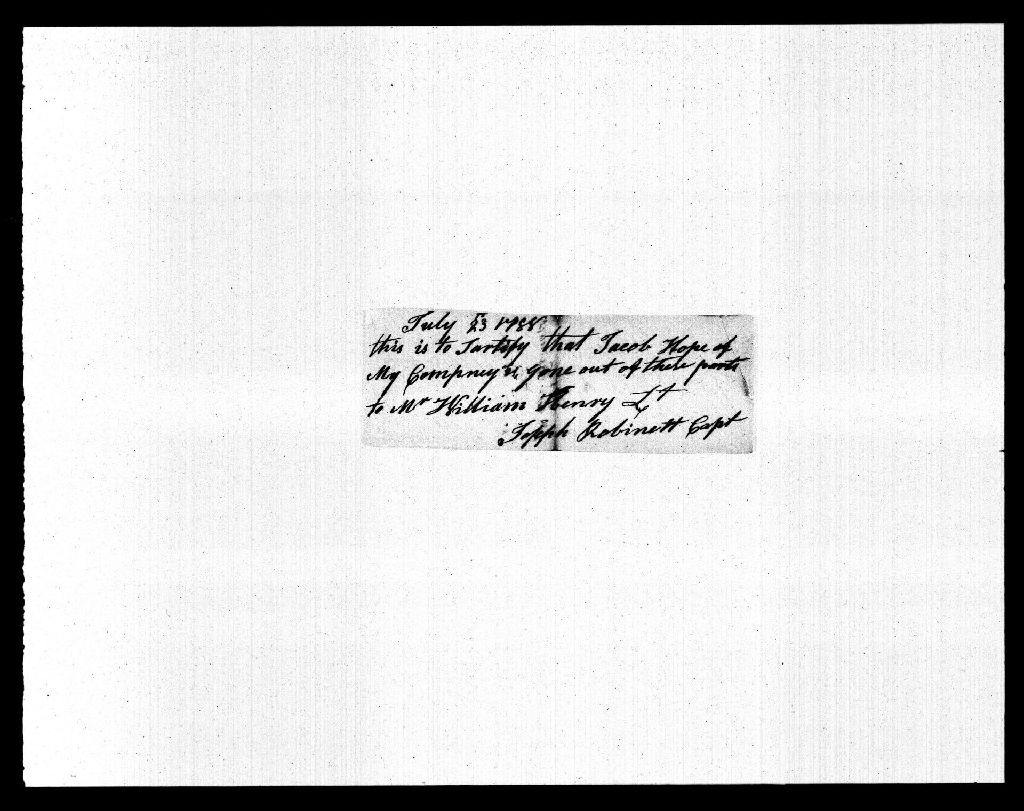 July 23 1788
this is to Sartefy that Jacob Hope of
My Compney is gone out of these parts
to Mr William Henry Lt
Joseph Robinett Capt